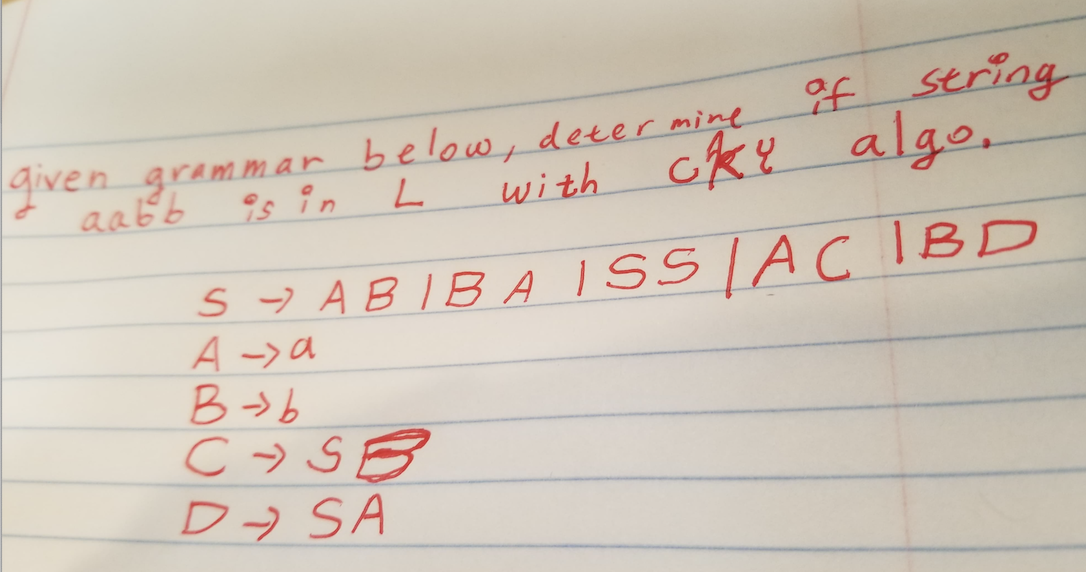 given grammar below, determine if string
aabb is in L with CKY algo.
S -> AB|BA|SS|AC|BD
A -> a
B -> b
C -> SB
D -> SA